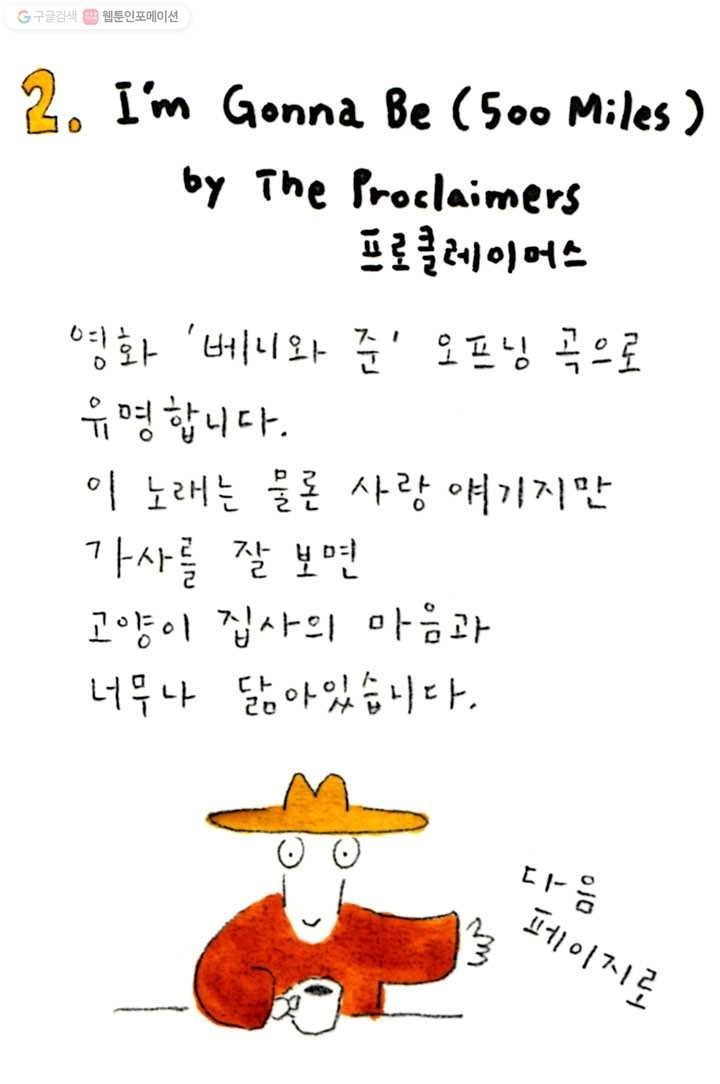 구글검색 웹툰인포메이션
2. I'm Gonna Be (500 Miles)
by The Proclaimers
프로클레이머스
영화 '베니와 준' 오프닝 곡으로
유명합니다.
이 노래는 물론 사랑 얘기지만
가사를 잘 보면
고양이 집사의 마음과
너무나 닮아있습니다.
다음
페이지로